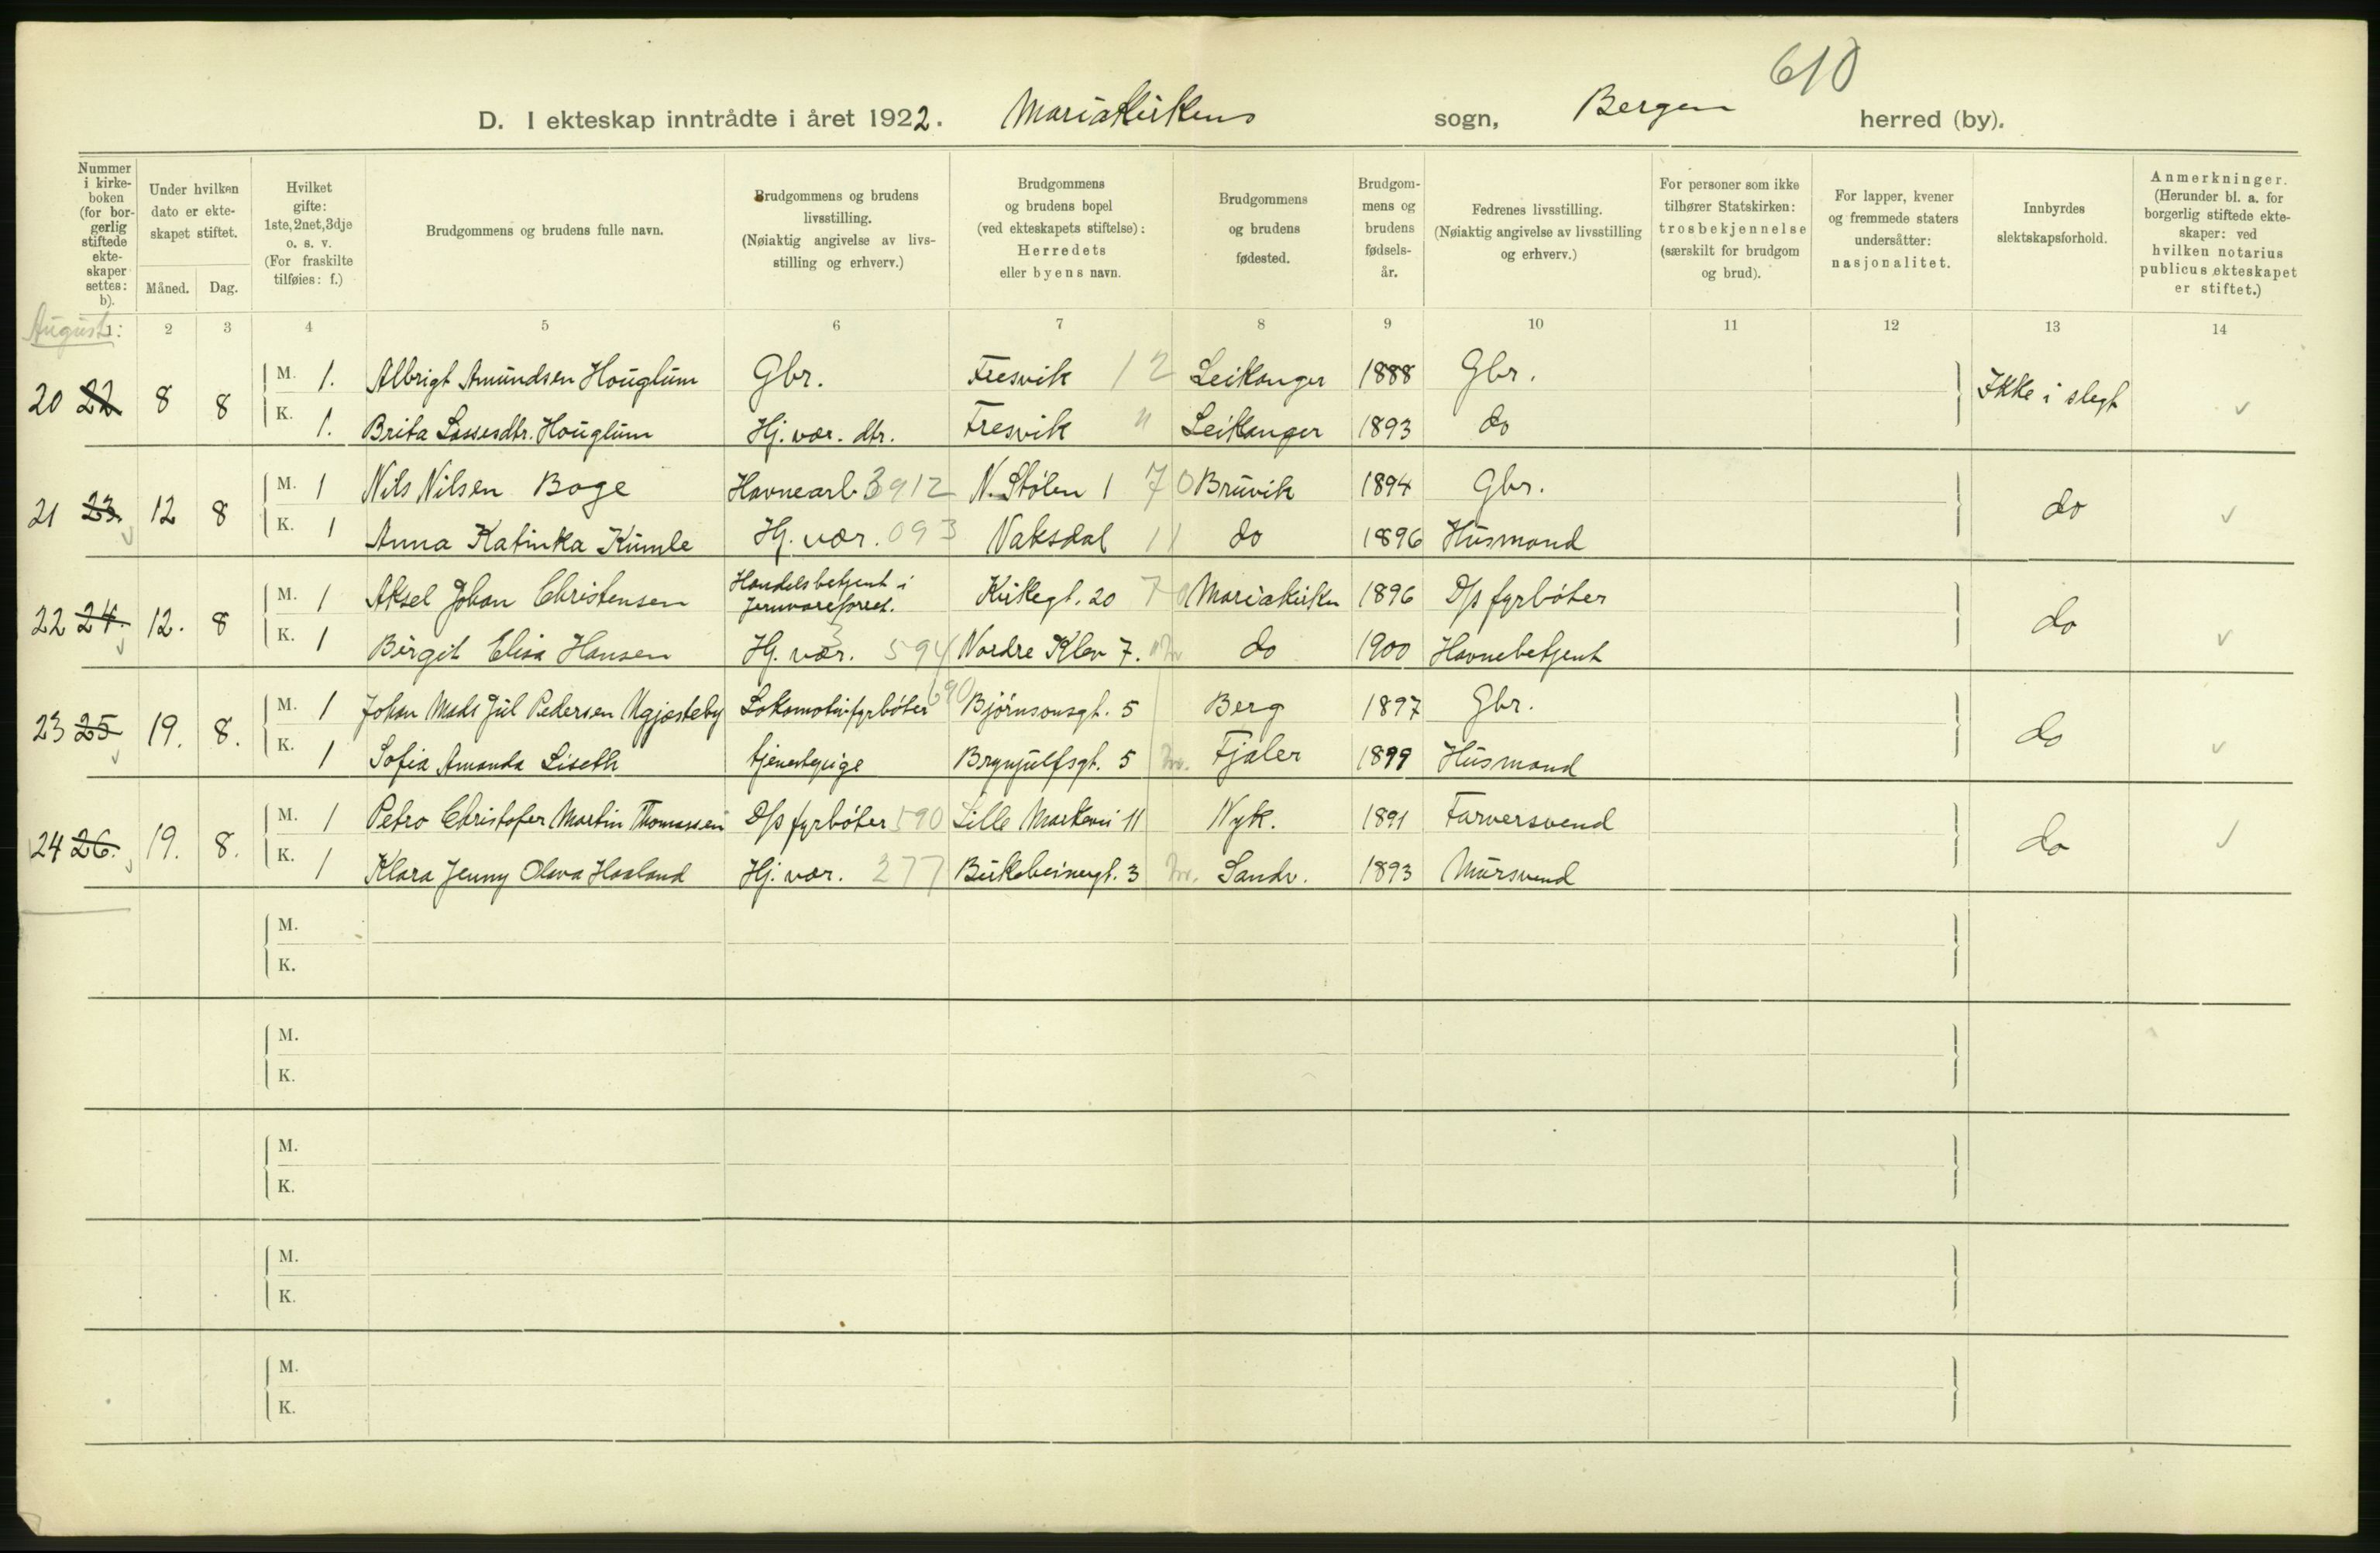 610
D. I ekteskap inntrådte i året 1922. Mariakirkens sogn, Bergen herred (by).
Nummer i kirke-boken (for bor-gerlig stiftede ekte-skaper settes: b).
Under hvilken dato er ekte-skapet stiftet.
Måned. Dag.
Hvilket gifte: 1ste, 2net, 3dje o. s. v. (For fraskilte tilføies: f.)
Brudgommens og brudens fulle navn.
Brudgommens og brudens livsstilling. (Nøiaktig angivelse av livs-stilling og erhverv.)
Brudgommens og brudens bopel (ved ekteskapets stiftelse): Herredets eller byens navn.
Brudgommens og brudens fødested.
Brudgom-mens og brudens fødsels-år.
Fedrenes livsstilling. (Nøiaktig angivelse av livsstilling og erhverv.)
For personer som ikke tilhører Statskirken: trosbekjennelse (særskilt for brudgom og brud).
For lapper, kvener og fremmede staters undersåtter: nasjonalitet.
Innbyrdes slektskapsforhold.
Anmerkninger. (Herunder bl. a. for borgerlig stiftede ekte-skaper: ved hvilken notarius publicus ekteskapet er stiftet.)
August:
1 2 3 4 5 6 7 8 9 10 11 12 13 14
20 22 8 8 M. 1. Albrigt Amundsen Houglum Gbr. Fresvik 12 Leikanger 1888 Gbr. Ikke i slegt
K. 1. Brita Lassesdtr. Houglum Hj. vær. dtr. Fresvik " Leikanger 1893 do
21 23. 12 8 M. 1 Nils Nilsen Boge Havnearb. 3912 N. Stølen 1 70 Bruvik 1894 Gbr. do
K. 1 Anna Katinka Kumle Hj. vær. 093 Vaksdal 11 do 1896 Husmand
22 24. 12. 8 M. 1 Aksel Johan Christensen Handelsbetjent i Jernvareforret. Kirkegt. 20 70 Mariakirken 1896 D/s fyrbøter do
K. 1 Birgit Elisa Hansen Hj. vær. 594 Nordre Klev 7. do 1900 Havnebetjent
23 25 19. 8. M. 1 Johan Mads Jul Pedersen Ugjæsteby Lokomotivfyrbøter 690 Bjørnsonsgt. 5 Berg 1897 Gbr. do
K. 1 Sofia Amanda Liseth tjenestepige Brynjulfsgt. 5 Fjaler 1899 Husmand
24 26. 19. 8. M. 1 Petro Christofer Martin Thomassen D/s fyrbøter 590 Lille Markevei 11 Nyk. 1891 Farversvend do
K. 1 Klara Jenny Olava Haaland Hj. vær. 277 Birkebeinergt. 3 Sandv. 1893 Mursvend
M.
K.
M.
K.
M.
K.
M.
K.
M.
K.